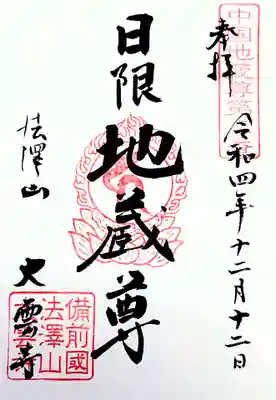 奉拝
令和四年十二月十二日
日限地蔵尊
法澤山
大雲寺
備前國
法澤山
大雲寺